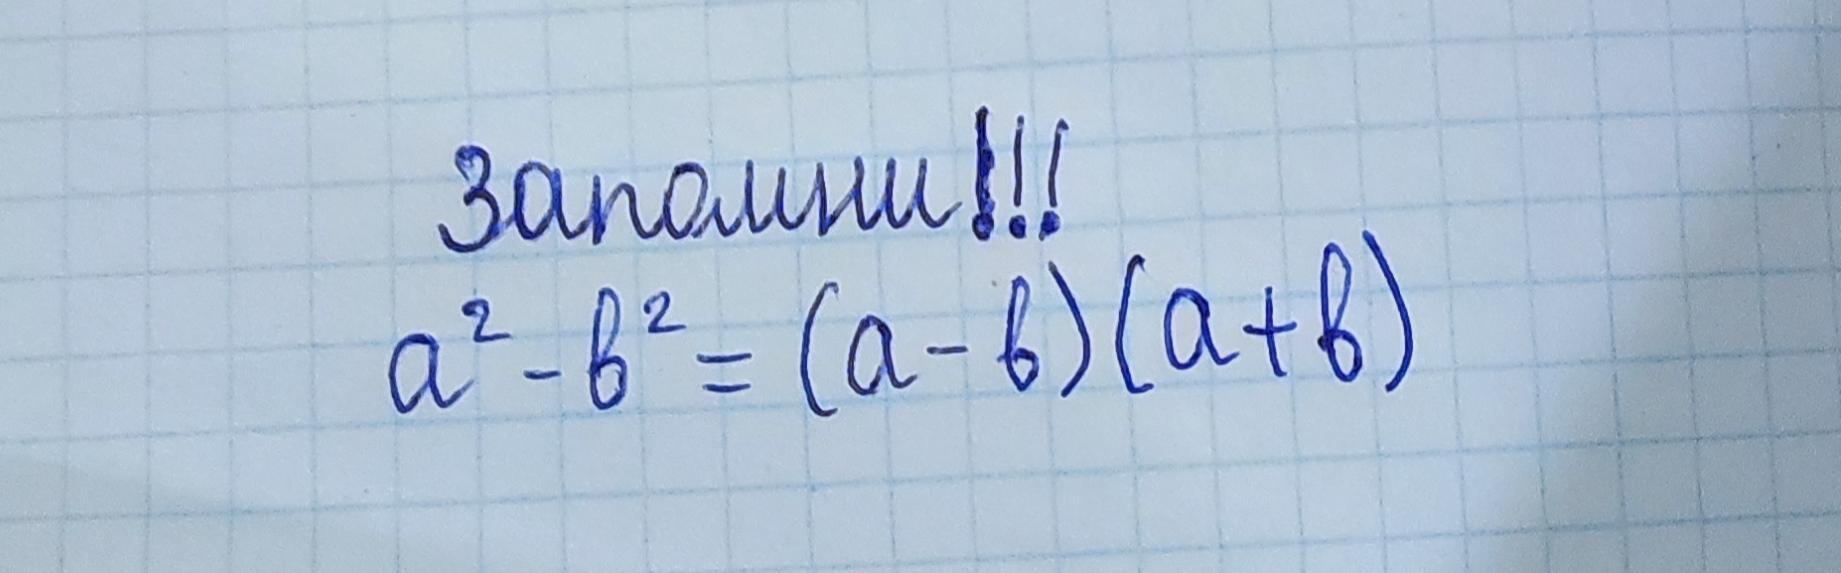 Запомни!!!
a² - b² = (a - b)(a + b)